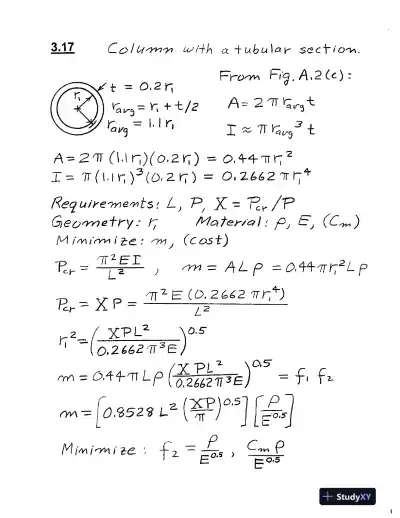 3.17 Column with a tubular section.
t = 0.2r₁ From Fig. A.2(c):
r₁ r_avg = r₁ + t/2 A = 2π r_avg t
r_avg = 1.1r₁ I ≈ π r_avg³ t
A = 2π (1.1r₁)(0.2r₁) = 0.44πr₁²
I = π(1.1r₁)³(0.2r₁) = 0.2662πr₁⁴
Requirements: L, P, X = P_cr/P
Geometry: r₁ Material: ρ, E, (C_m)
Minimize: m, (cost)
P_cr = π²EI / L² , m = ALρ = 0.44πr₁²Lρ
P_cr = XP = π²E(0.2662πr₁⁴) / L²
r₁² = (XPL² / 0.2662π³E)^0.5
m = 0.44πLρ (XPL² / 0.2662π³E)^0.5 = f₁ f₂
m = [0.8528 L² (XP/π)^0.5] [ρ / E^0.5]
Minimize: f₂ = ρ / E^0.5 , C_m ρ / E^0.5
StudyXY